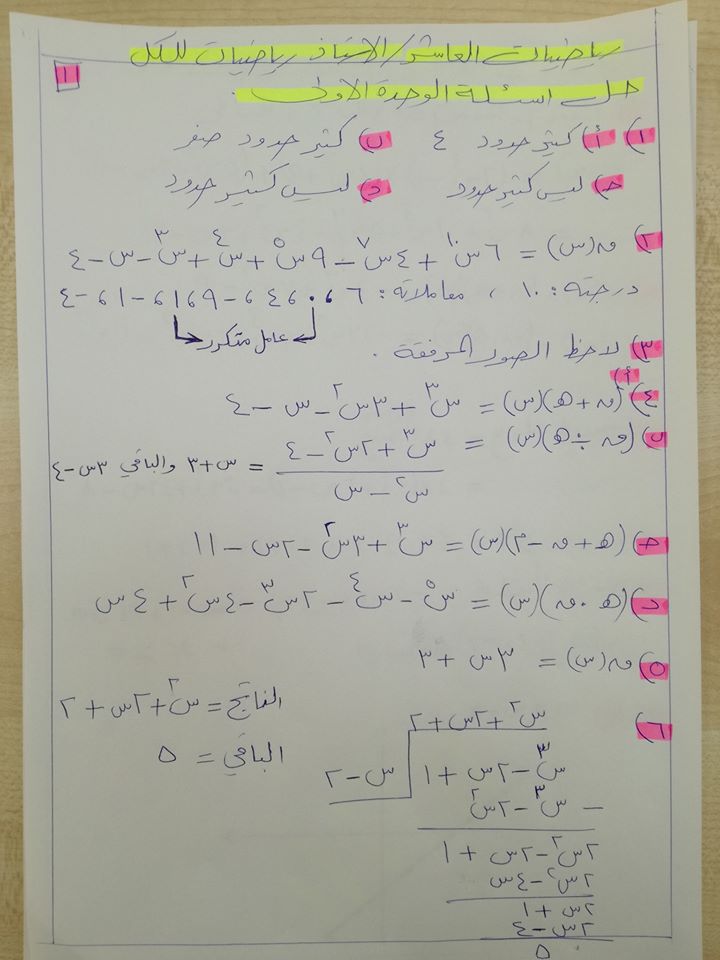 رياضيات العاشر / الاستاذ رياضيات للكل
١
حل اسئلة الوحدة الاولى .
١) أ) كثير حدود ٤ ب) كثير حدود صفر
جـ) ليس كثير حدود د) ليس كثير حدود
٢) ق(س) = ٦س^١٠ + ٤س^٧ - ٩س^٥ + س^٤ + س^٣ - س - ٤
درجته: ١٠ ، معاملاته: ٦ ، ٠ ، ٤ ، -٩ ، ١ ، -١ ، -٤
عامل متكرر
٣) لاحظ الصور المرفقة .
٤) أ) (ق + هـ)(س) = س^٣ + ٣س^٢ - س - ٤
ب) (ق ÷ هـ)(س) = (س^٣ + ٢س^٢ - ٤) / (س^٢ - س) = س + ٣ والباقي ٣س - ٤
جـ) (هـ + ق - ٢م)(س) = س^٣ + ٣س^٢ - ٢س - ١١
د) (هـ . ق)(س) = س^٥ - س^٤ - ٢س^٣ - ٤س^٢ + ٤س
٥) ق(س) = ٣س + ٣
٦) س^٢ + ٢س + ٢ الناتج = س^٢ + ٢س + ٢
س^٣ - ٢س + ١ س - ٢ الباقي = ٥
- س^٣ - ٢س^٢
٢س^٢ - ٢س + ١
٢س^٢ - ٤س
٢س + ١
٢س - ٤
٥